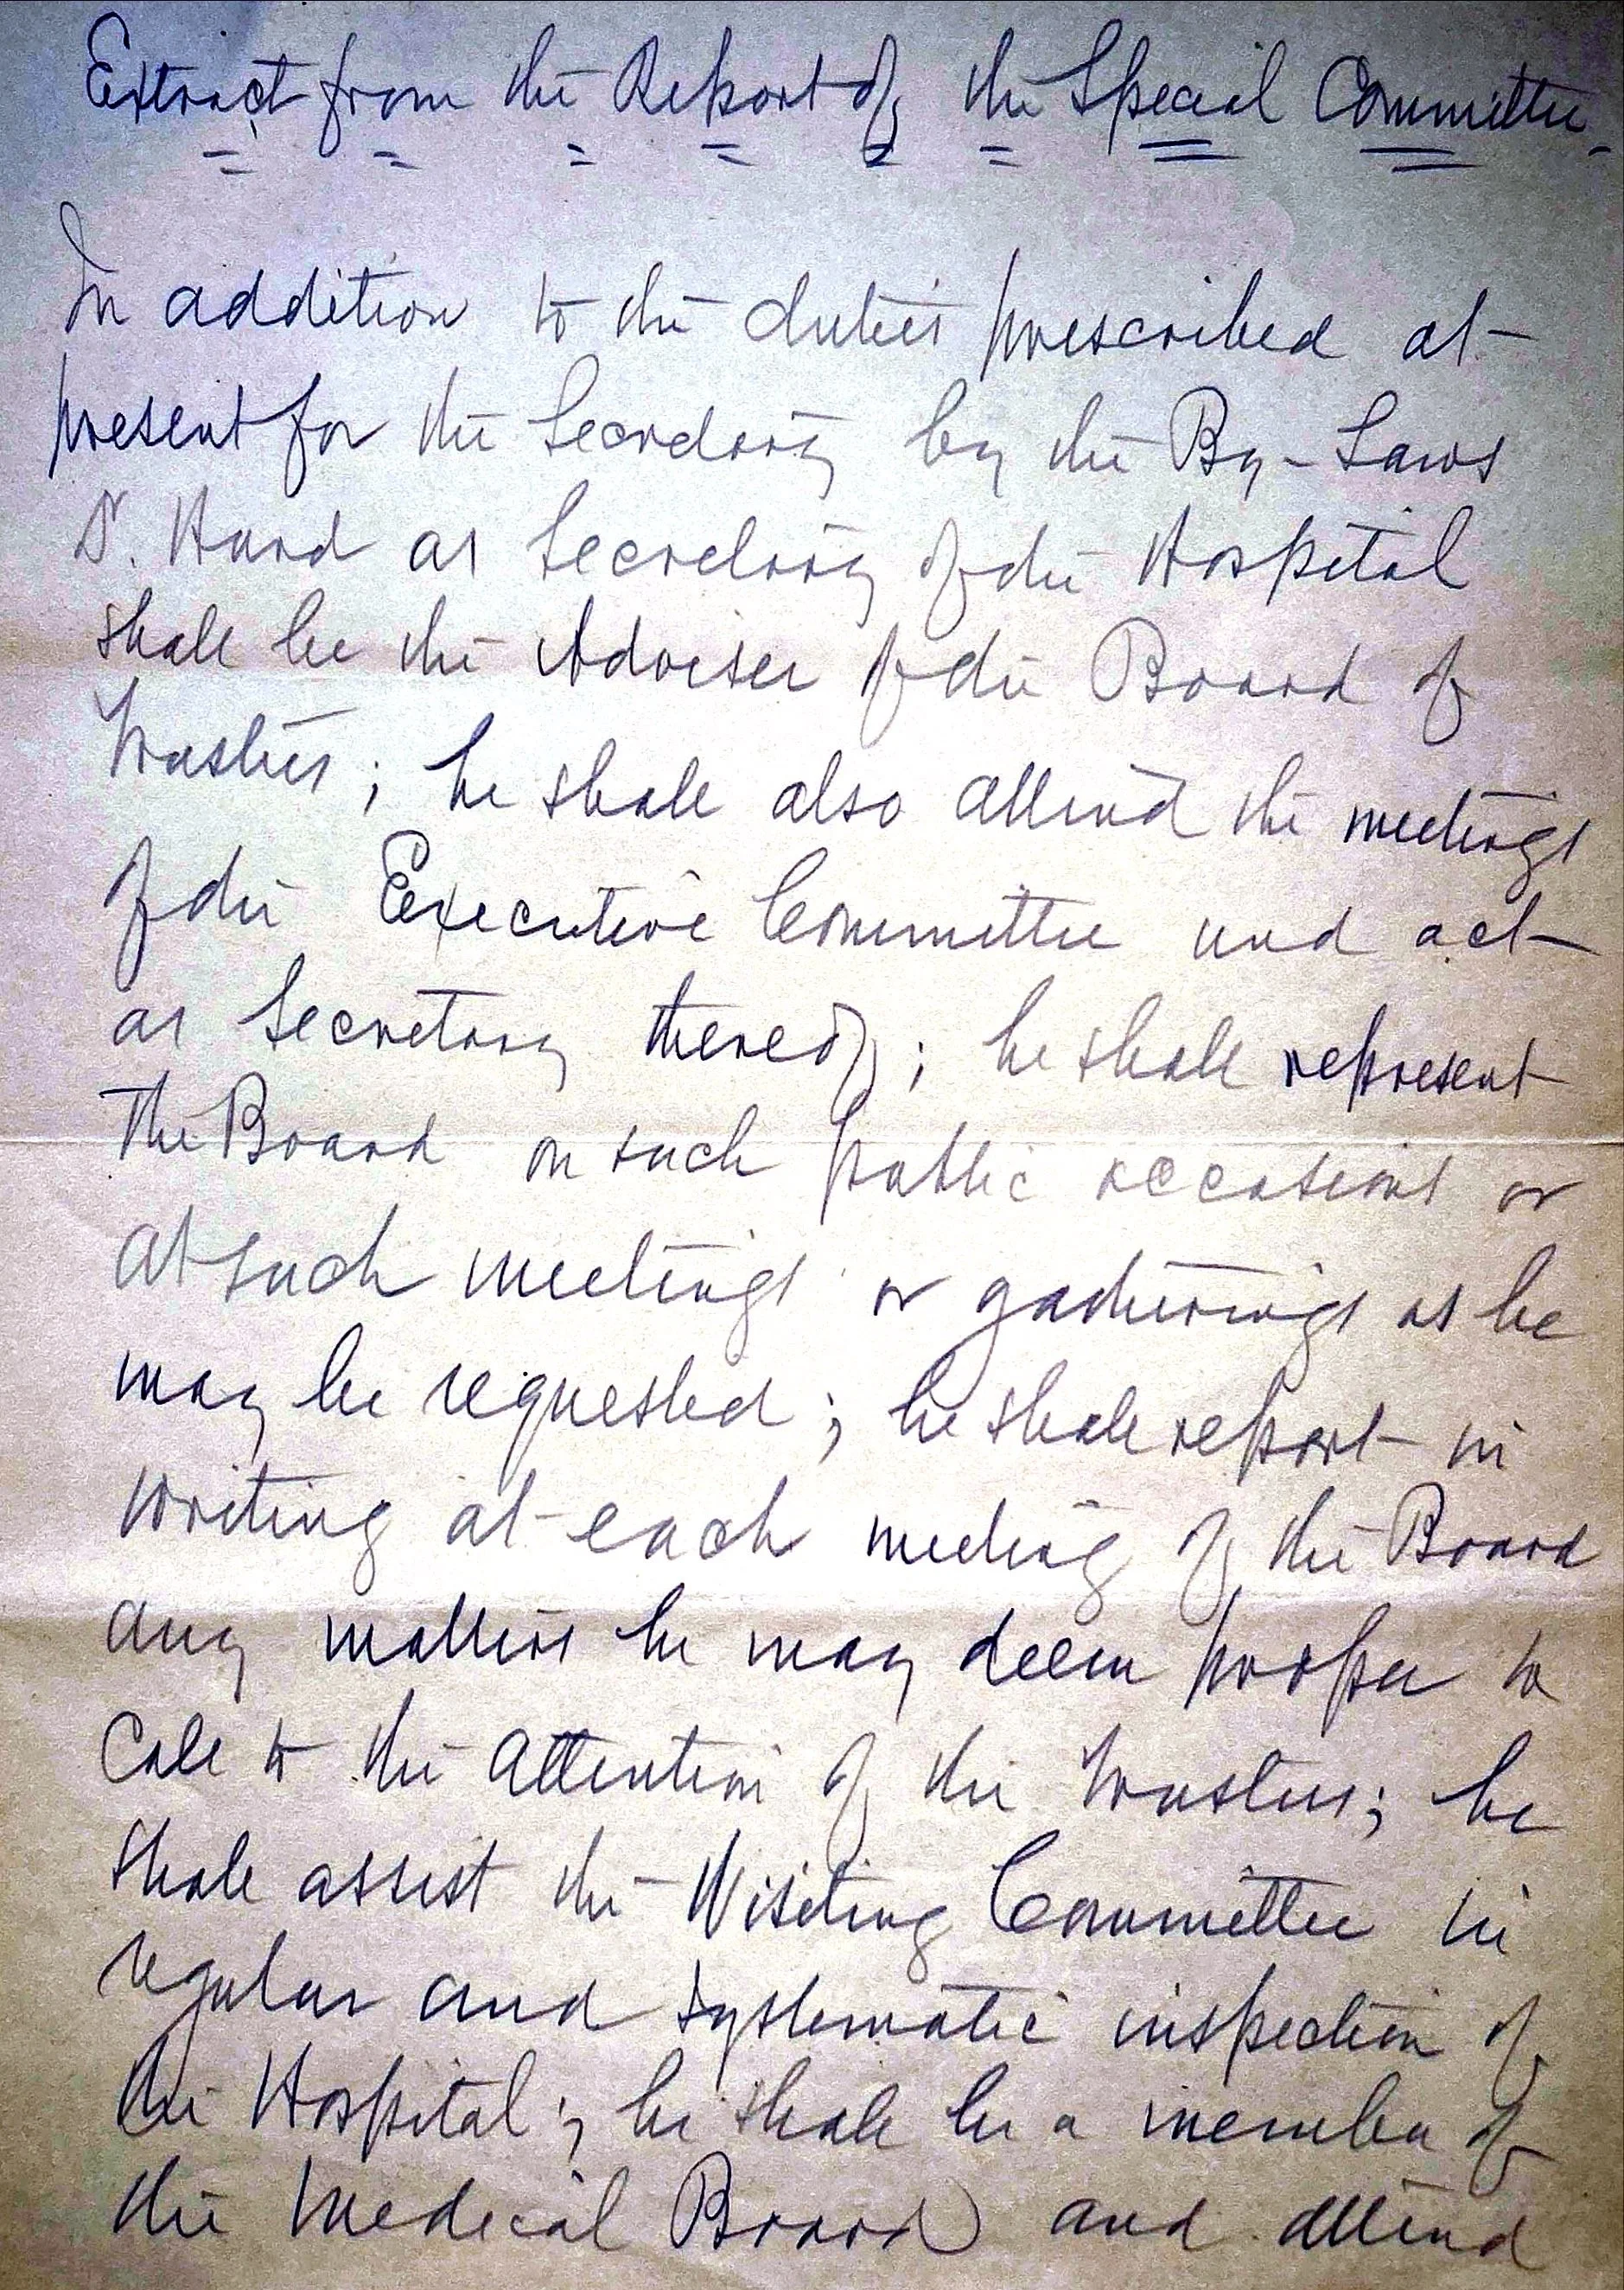 Extract from the Report of the Special Committee.
In addition to the duties prescribed at
present for the Secretary by the By-Laws
Dr. Hurd as Secretary of the Hospital
shall be the Adviser of the Board of
Trustees; he shall also attend the meetings
of the Executive Committee and act
as Secretary thereof; he shall represent
the Board on such public occasions or
at such meetings or gatherings as he
may be requested; he shall report in
writing at each meeting of the Board
any matters he may deem proper to
call to the attention of the Trustees; he
shall assist the Visiting Committee in
regular and systematic inspection of
the Hospital; he shall be a member of
the Medical Board and attend